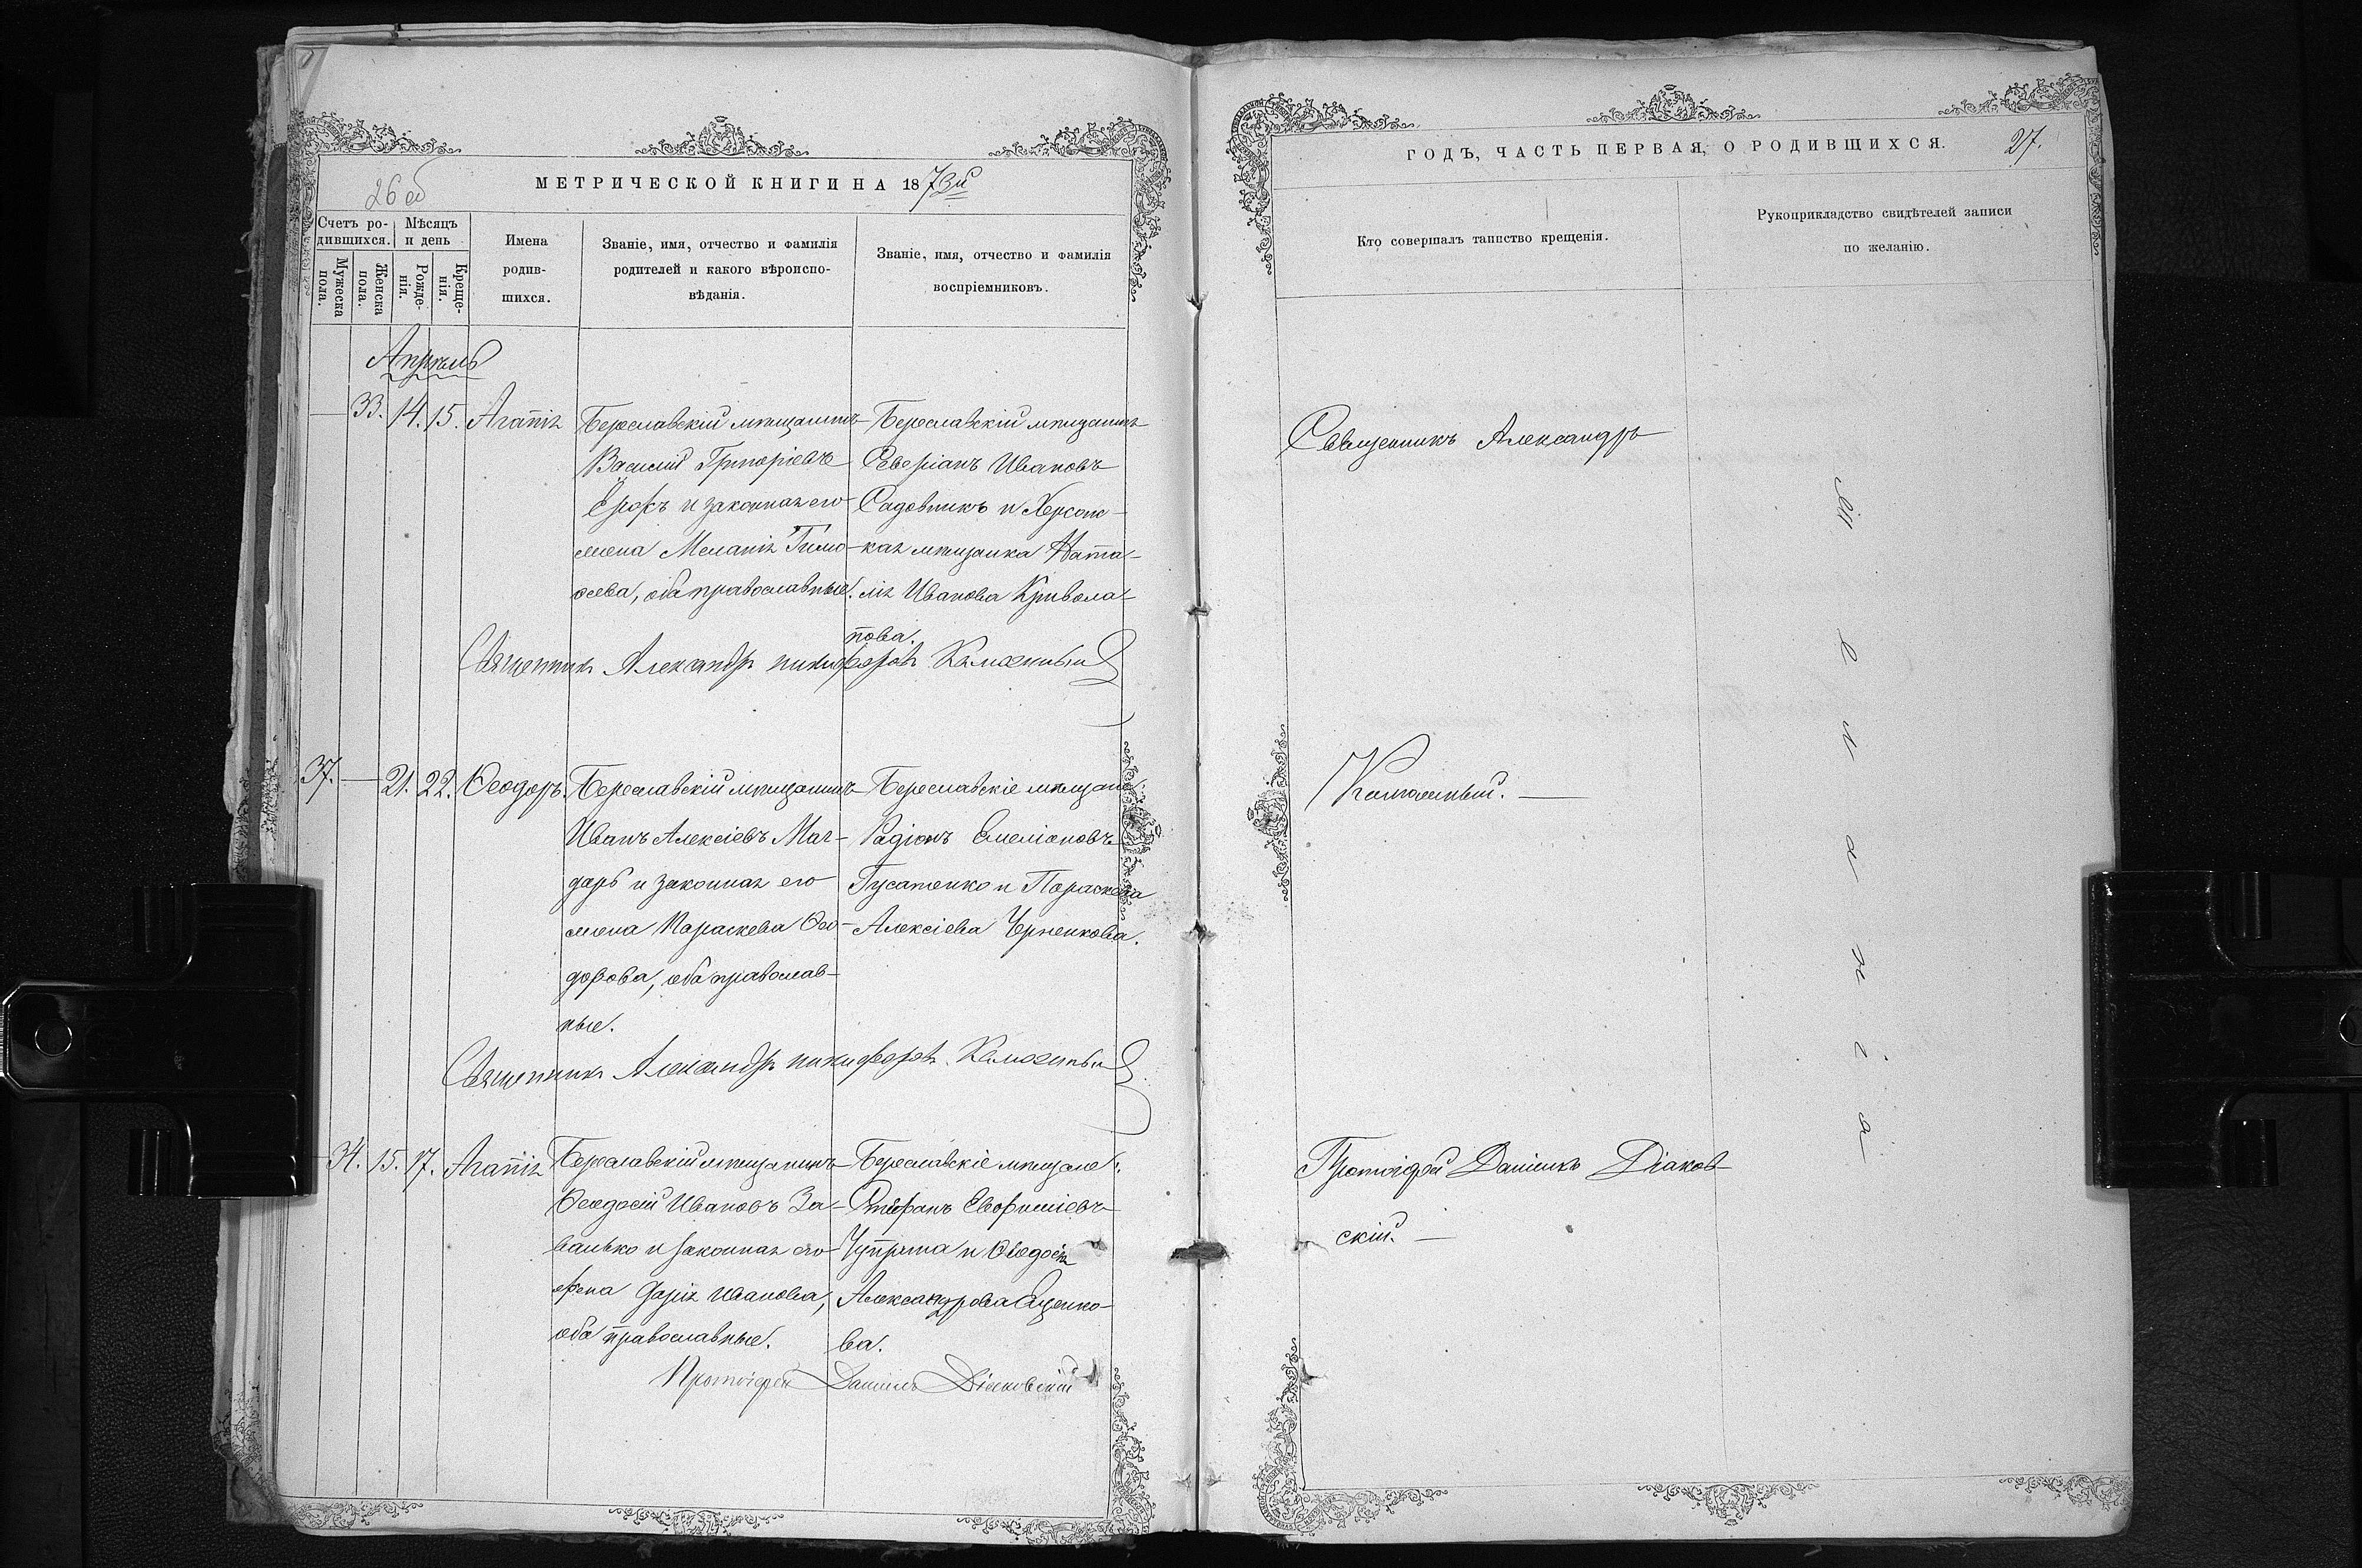 26 об
МЕТРИЧЕСКОЙ КНИГИ НА 1873й
Счетъ ро-
дившихся.
Мѣсяцъ
и день
Мужеска
пола.
Женска
пола.
Рожде-
нія.
Креще-
нія.
Имена
родив-
шихся.
Званіе, имя, отчество и фамилія
родителей и какого вѣроиспо-
вѣданія.
Званіе, имя, отчество и фамилія
воспріемниковъ.
Апрѣль
33. 14. 15. Агапія
Береславскій мѣщанинъ
Василій Григоріевъ
и законная его
жена Меланія Тимо-
ѳеева, оба православные.
Береславскій мѣщанинъ
Северіанъ Ивановъ
Садовникъ и Херсон-
кая мѣщанка Ната-
лія Иванова Кривола-
пова.
Священникъ Александръ Никифоровъ
37. — 21. 22. Ѳеодоръ.
Береславскій мѣщанинъ
Иванъ Алексіевъ Маг-
даръ и законная его
жена Параскева Ѳео-
дорова, оба православ-
ные.
Береславскіе мѣщане:
Радіонъ Емеліановъ
Гусатенко и Параскева
Алексіева Черненкова.
Священникъ Александръ Никифоровъ
34. 15. 17. Агапія
Береславскій мѣщанинъ
Ѳеодосій Ивановъ За-
ванько и законная его
жена Дарія Иванова,
оба православные.
Береславскіе мѣщане:
Стефанъ Евфиміевъ
Чуприна и Ѳеодосія
Александрова Ященко-
ва.
Протоіерей Даніилъ Діаковскій
ГОДЪ, ЧАСТЬ ПЕРВАЯ, О РОДИВШИХСЯ.
27.
Кто совершалъ таинство крещенія.
Рукоприкладство свидѣтелей записи
по желанію.
Священникъ Александръ
Протоіерей Даніилъ Діаков-
скій. —